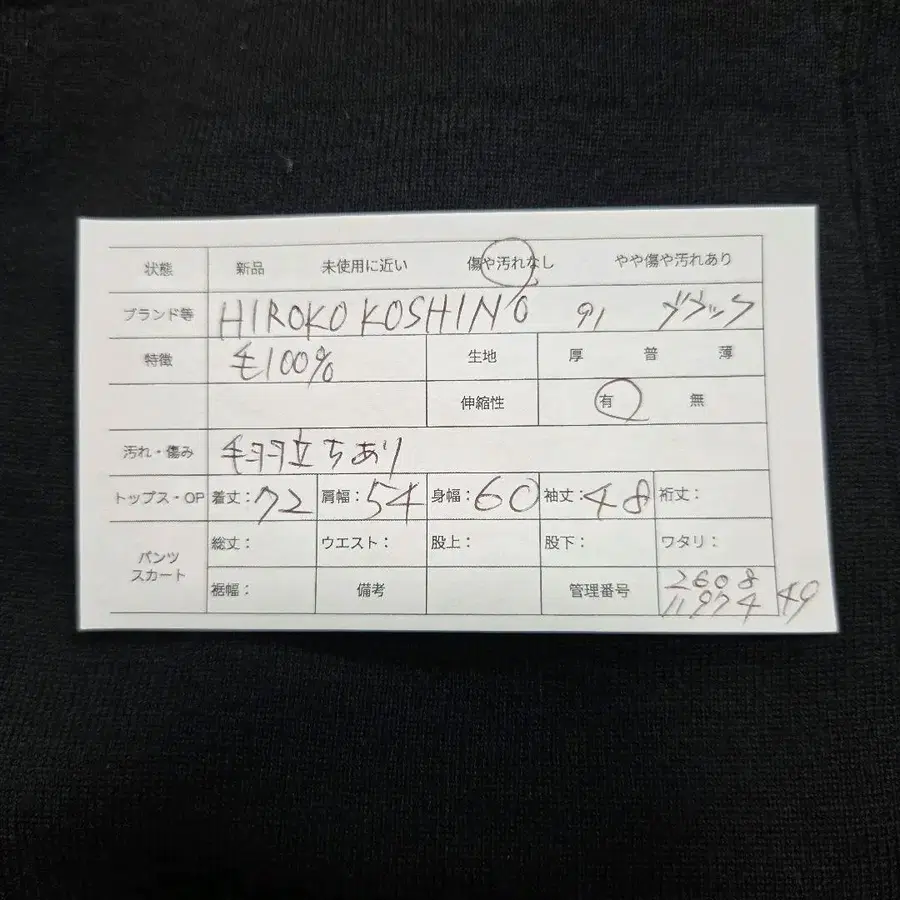 状態 新品 未使用に近い 傷や汚れなし やや傷や汚れあり
ブランド等 HIROKO KOSHINO 91 ブラック
特徴 毛100% 生地 厚 普 薄
伸縮性 有 無
汚れ・傷み 毛羽立ちあり
トップス・OP 着丈:72 肩幅:54 身幅:60 袖丈:48 裄丈:
パンツ スカート 総丈: ウエスト: 股上: 股下: ワタリ:
裾幅: 備考 管理番号 2608
11974 49